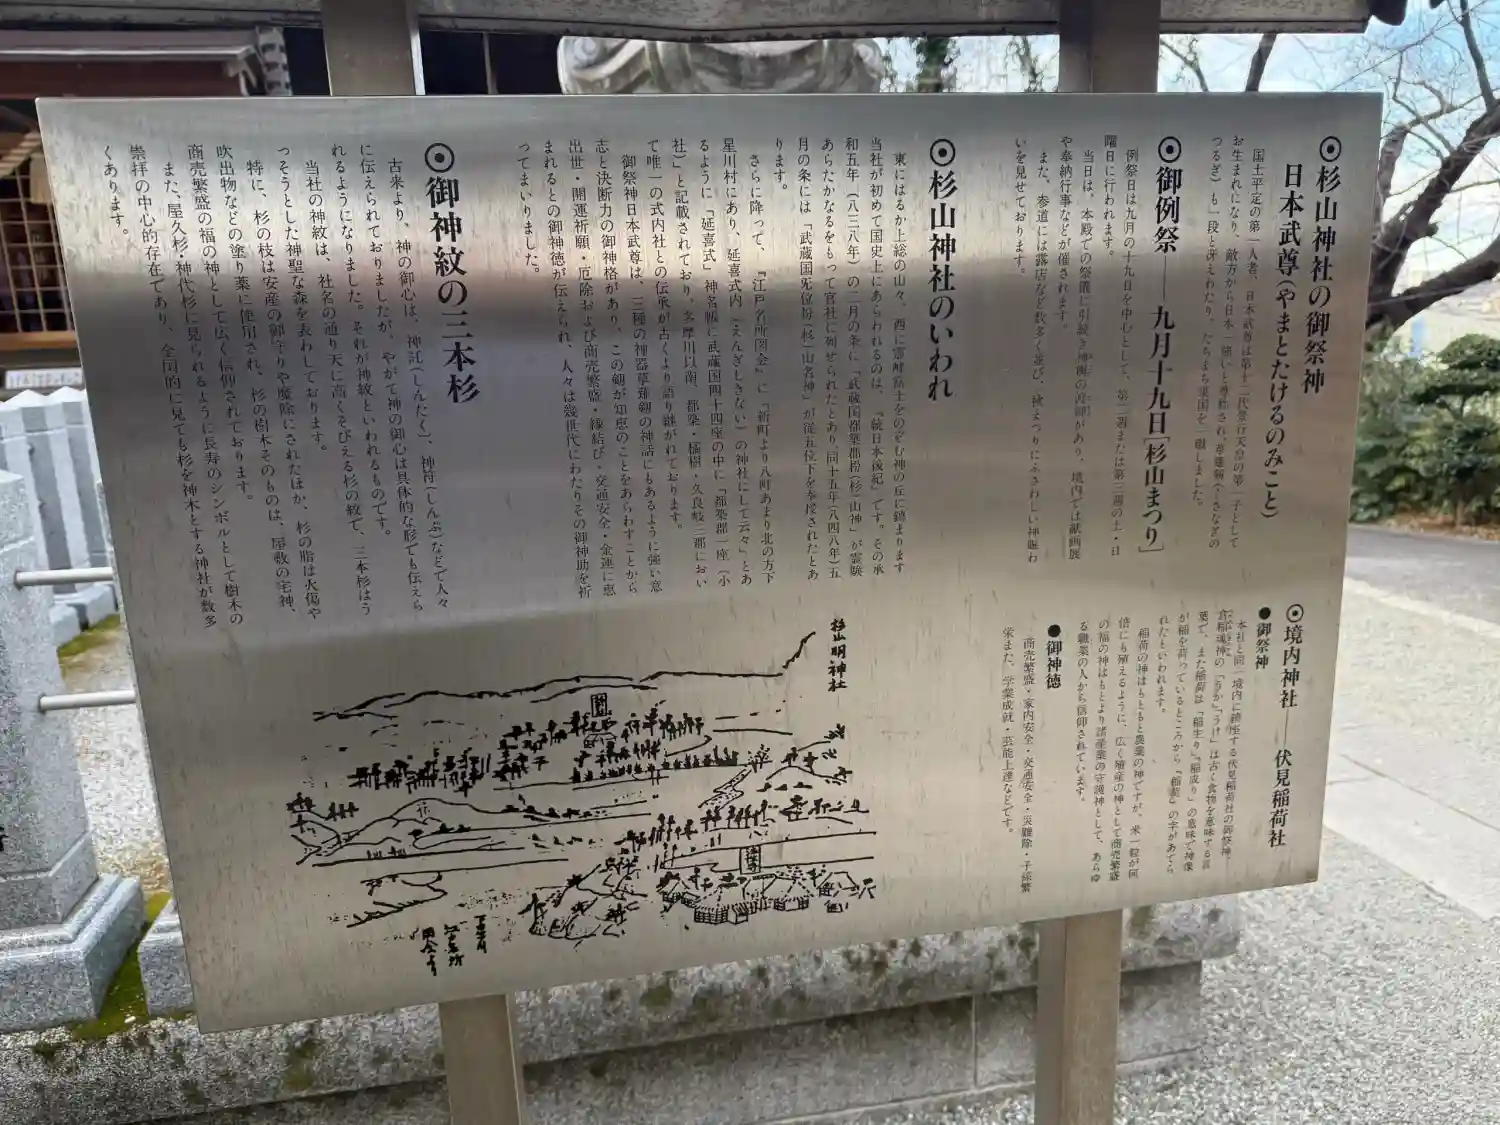 ◉杉山神社の御祭神
日本武尊(やまとたけるのみこと)
国土平定の第一人者、日本武尊は第十二代景行天皇の第一子として
お生まれになり、敵方から日本一強いと尊称され、草薙剣(くさなぎの
つるぎ)も一段と冴えわたり、たちまち東国を平定しました。
◉御例祭――九月十九日[杉山まつり]
例祭日は九月の十九日を中心として、第二週または第三週の土・日
曜日に行われます。
当日は、本殿での祭儀に引続き神輿の渡御があり、境内では献画展
や奉納行事などが催されます。
また、参道には露店など数多く並び、秋まつりにふさわしい神賑わ
いを見せております。
◉杉山神社のいわれ
東にはるか上総の山々、西に霊峰富士をのぞむ神の丘に鎮まります
当社が初めて国史上にあらわれるのは、『続日本後紀』です。その承
和五年(八三八年)の二月の条に「武蔵国都筑郡枌(杉)山神」が霊験
あらたかなるをもって官社に列せられたとあり、同十五年(八四八年)五
月の条には「武蔵国无位枌(杉)山名神」が従五位下を奉授されたとあ
ります。
さらに降って、『江戸名所図会』に「新町より八町あまり北の方下
星川村にあり、延喜式内(えんぎしきない)の神社にして云々」とあ
るように「延喜式」神名帳に武蔵国四十四座の中に「都築郡一座(小
社)」と記載されており、多摩川以南、都築・橘樹・久良岐三郡におい
て唯一の式内社との伝承が古くより語り継がれております。
御祭神日本武尊は、三種の神器草薙剣の神話にもあるように強い意
志と決断力の御神格があり、この剣が知恵のことをあらわすことから
出世・開運祈願・厄除および商売繁盛・縁結び・交通安全・金運に恵
まれるとの御神徳が伝えられ、人々は幾世代にわたりその御神助を祈
ってまいりました。
◉御神紋の三本杉
古来より、神の御心は、神託(しんたく)、神符(しんぷ)などで人々
に伝えられておりましたが、やがて神の御心は具体的な形でも伝えら
れるようになりました。それが神紋といわれるものです。
当社の神紋は、社名の通り天に高くそびえる杉の紋で、三本杉はう
っそうとした神聖な森を表わしております。
特に、杉の枝は安産の御守りや魔除にされたほか、杉の脂は火傷や
吹出物などの塗り薬に使用され、杉の樹木そのものは、屋敷の宅神、
商売繁盛の福の神として広く信仰されております。
また、屋久杉・神代杉に見られるように長寿のシンボルとして樹木の
崇拝の中心的存在であり、全国的に見ても杉を神木とする神社が数多
くあります。
◉境内神社――伏見稲荷社
●御祭神
本社と同一境内に鎮座する伏見稲荷社の御祭神、
倉稲魂神の「うか」「うけ」は古く食物を意味する言
葉で、また稲荷は「稲生り」「稲成り」の意味で神像
が稲を荷っているところから「稲荷」の字があてら
れたといわれます。
稲荷の神はもともと農業の神ですが、米一粒が何
倍にも殖えるように、広く殖産の神として商売繁盛
の福の神はもとより諸産業の守護神として、あらゆ
る職業の人から信仰されています。
●御神徳
商売繁盛・家内安全・交通安全・災難除・子孫繁
栄また、学業成就・芸能上達などです。
杉山明神社